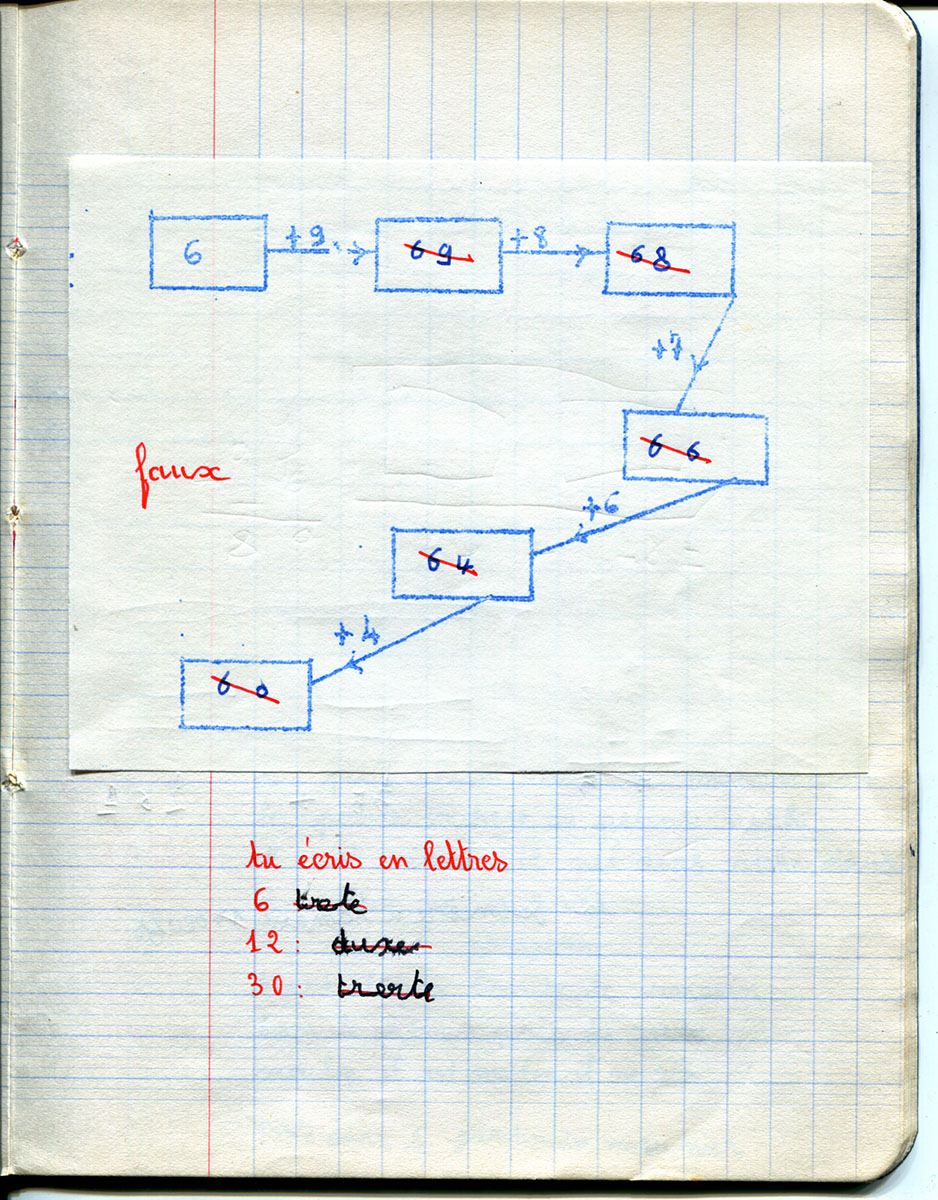 6 +9 69 +8 68
+7
66
faux
+6
64
+4
60
tu écris en lettres
6 trete
12: duxe
30: trerte